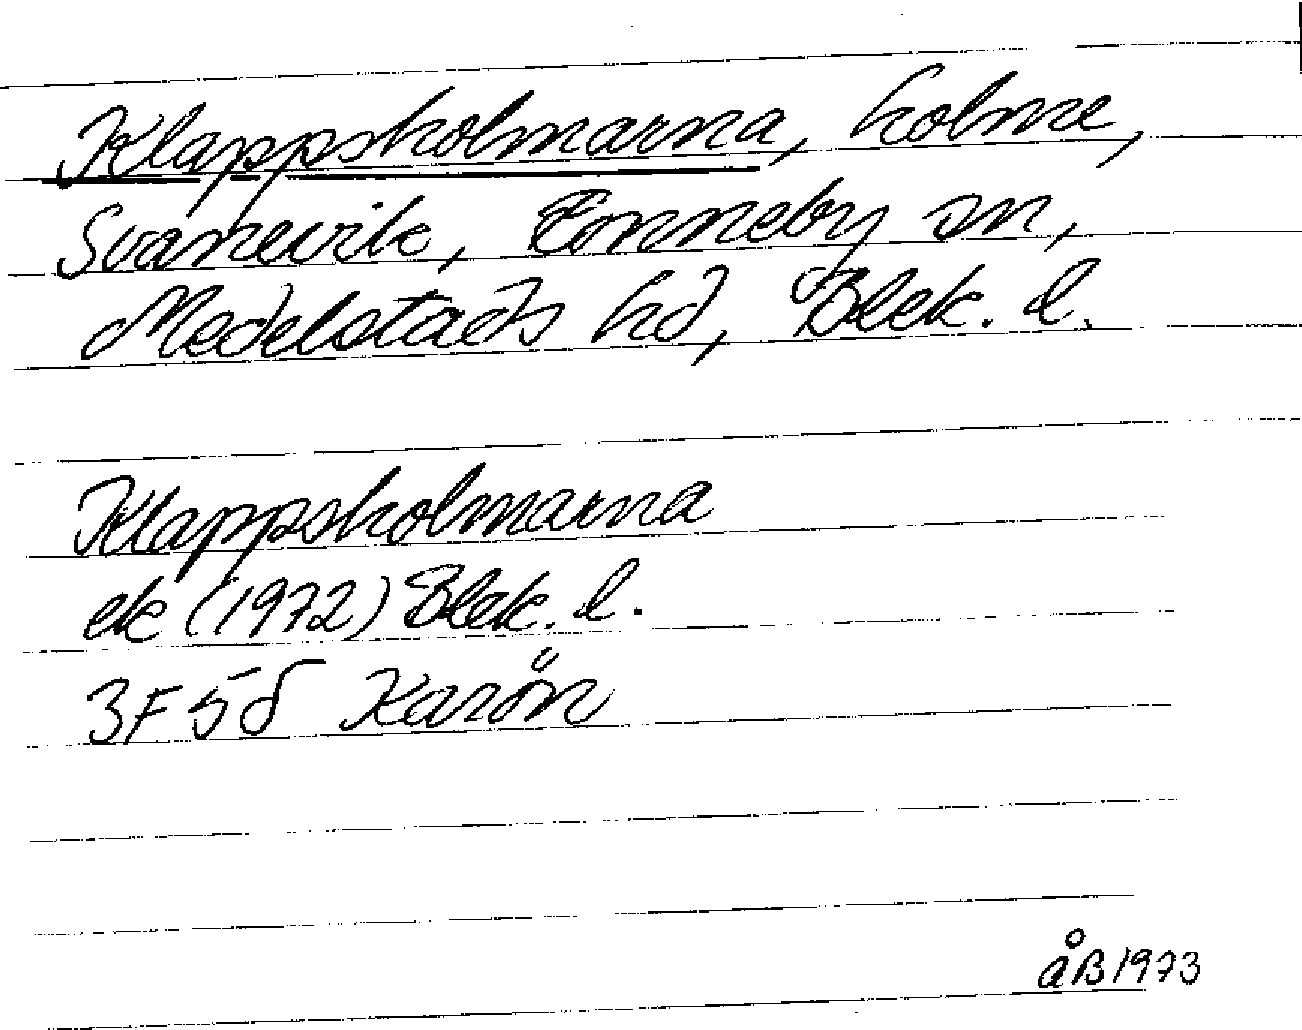 Klappsholmarna, holme,
Svanevik, Ronneby sn,
Medelstads hd, Blek. l.
Klappsholmarna
ek (1972) Blek. l.
3F 5d Karön
åB 1973